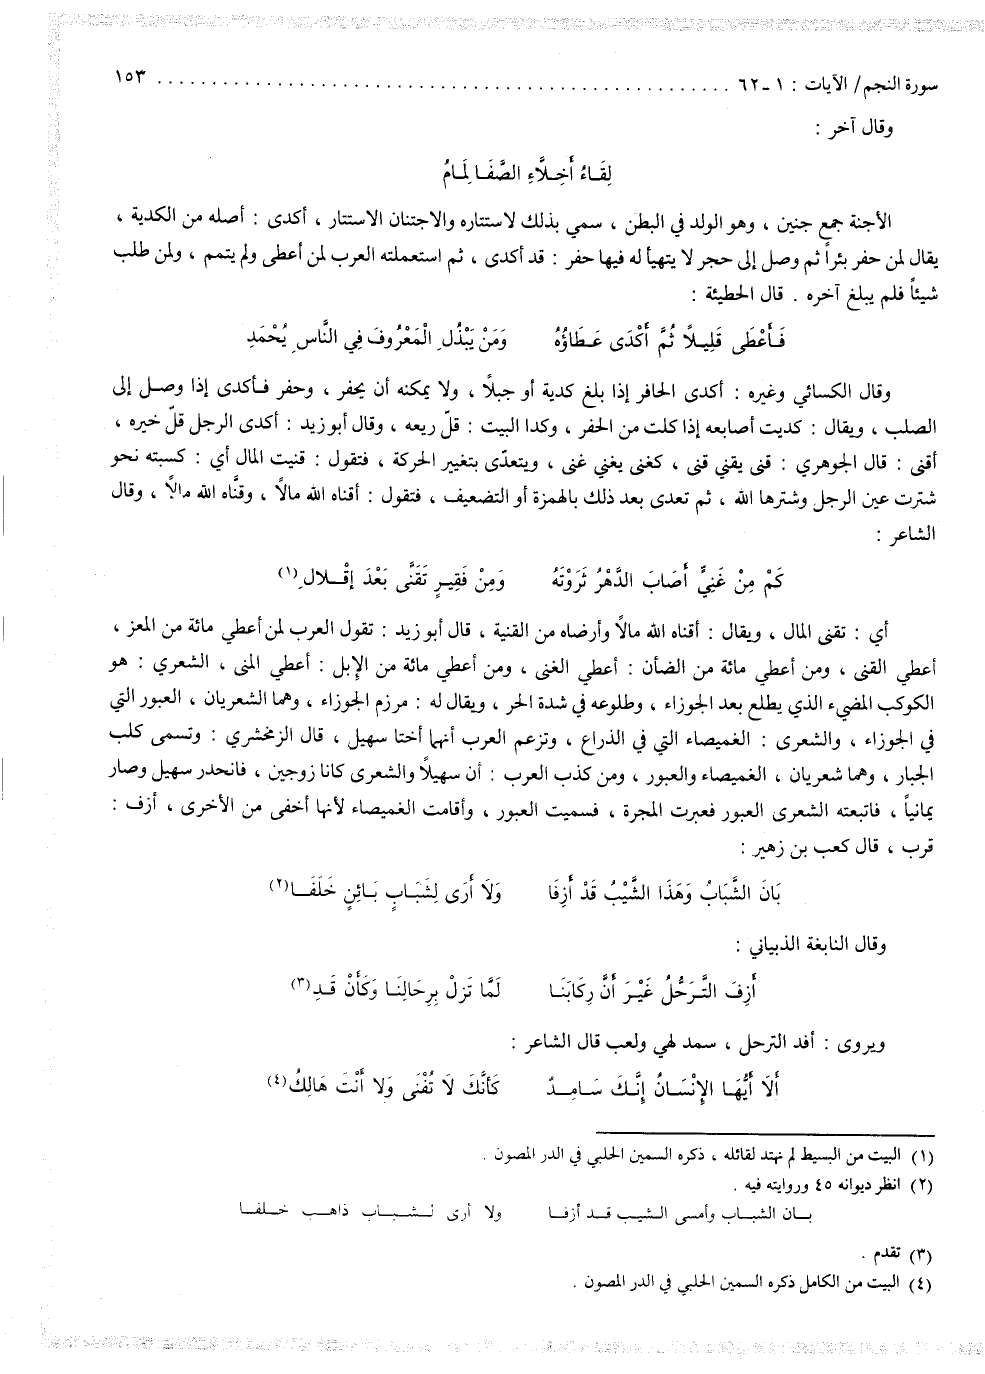 سورة النجم/ الآيات : ١ -٦٢ ........................................................ ١٥٣
وقال آخر :
لِقَاءُ أَخِلَّاءِ الصَّفَا لِمَامُ
الأجنة جمع جنين ، وهو الولد في البطن ، سمي بذلك لاستتاره والاجتنان الاستتار ، أكدى : أصله من الكدية ،
يقال لمن حفر بئراً ثم وصل إلى حجر لا يتهيأ له فيها حفر : قد أكدى ، ثم استعملته العرب لمن أعطى ولم يتمم ، ولمن طلب
شيئاً فلم يبلغ آخره . قال الحطيئة :
فَأَعْطَى قَلِيلًا ثُمَّ أَكْدَى عَطَاؤُهُ وَمَنْ يَبْذُلِ الْمَعْرُوفَ فِي النَّاسِ يُحْمَدِ
وقال الكسائي وغيره : أكدى الحافر إذا بلغ كدية أو جبلًا ، ولا يمكنه أن يحفر ، وحفر فأكدى إذا وصل إلى
الصلب ، ويقال : كديت أصابعه إذا كلت من الحفر ، وكدا البيت : قلّ ريعه ، وقال أبو زيد : أكدى الرجل قلّ خيره ،
أقنى : قال الجوهري : قنى يقني قنى ، كغنى يغني غنى ، ويتعدّى بتغيير الحركة ، فتقول : قنيت المال أي : كسبته نحو
شترت عين الرجل وشترها الله ، ثم تعدى بعد ذلك بالهمزة أو التضعيف ، فتقول : أقناه الله مالًا ، وقنَّاه الله مالًا ، وقال
الشاعر :
كَمْ مِنْ غَنِيٍّ أَصَابَ الدَّهْرُ ثَرْوَتَهُ وَمِنْ فَقِيرٍ تَقَنَّى بَعْدَ إقْلالِ(١)
أي : تقنى المال ، ويقال : أقناه الله مالًا وأرضاه من القنية ، قال أبو زيد : تقول العرب لمن أعطي مائة من المعز ،
أعطي القنى ، ومن أعطي مائة من الضأن : أعطي الغنى ، ومن أعطي مائة من الإبل : أعطي المنى ، الشعري : هو
الكوكب المضيء الذي يطلع بعد الجوزاء ، وطلوعه في شدة الحر ، ويقال له : مرزم الجوزاء ، وهما الشعريان ، العبور التي
في الجوزاء ، والشعرى : الغميصاء التي في الذراع ، وتزعم العرب أنهما أختا سهيل ، قال الزمخشري : وتسمى كلب
الجبار ، وهما شعريان ، الغميصاء والعبور ، ومن كذب العرب : أن سهيلًا والشعرى كانا زوجين ، فانحدر سهيل وصار
يمانياً ، فاتبعته الشعرى العبور فعبرت المجرة ، فسميت العبور ، وأقامت الغميصاء لأنها أخفى من الأخرى ، أزف :
قرب ، قال كعب بن زهير :
بَانَ الشَّبَابُ وَهَذَا الشَّيْبُ قَدْ أَزِفَا وَلَا أَرَى لِشَبَابٍ بَائِنٍ خَلَفَا(٢)
وقال النابغة الذبياني :
أَزِفَ التَّرَحُّلُ غَيْرَ أَنَّ رِكَابَنَا لَمَّا تَزَلْ بِرِحَالِنَا وَكَأَنْ قَدِ(٣)
ويروى : أفد الترحل ، سمد لهي ولعب قال الشاعر :
أَلَا أَيُّهَا الإِنْسَانُ إِنَّكَ سَامِدٌ كَأَنَّكَ لَا تُفْنَى وَلَا أَنْتَ هَالِكُ(٤)
(١) البيت من البسيط لم نهتد لقائله ، ذكره السمين الحلبي في الدر المصون .
(٢) انظر ديوانه ٤٥ وروايته فيه .
بان الشباب وأمسى الشيب قد أزفا ولا أرى لشباب ذاهب خلفا
(٣) تقدم .
(٤) البيت من الكامل ذكره السمين الحلبي في الدر المصون .